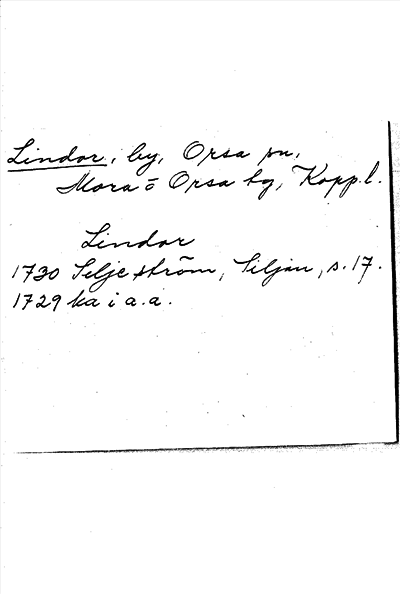 Lindor, by, Orsa sn,
Mora o Orsa tg, Kopp. l.
Lindor
1730 Siljeström, Siljan, s. 17.
1729 ka i a.a.